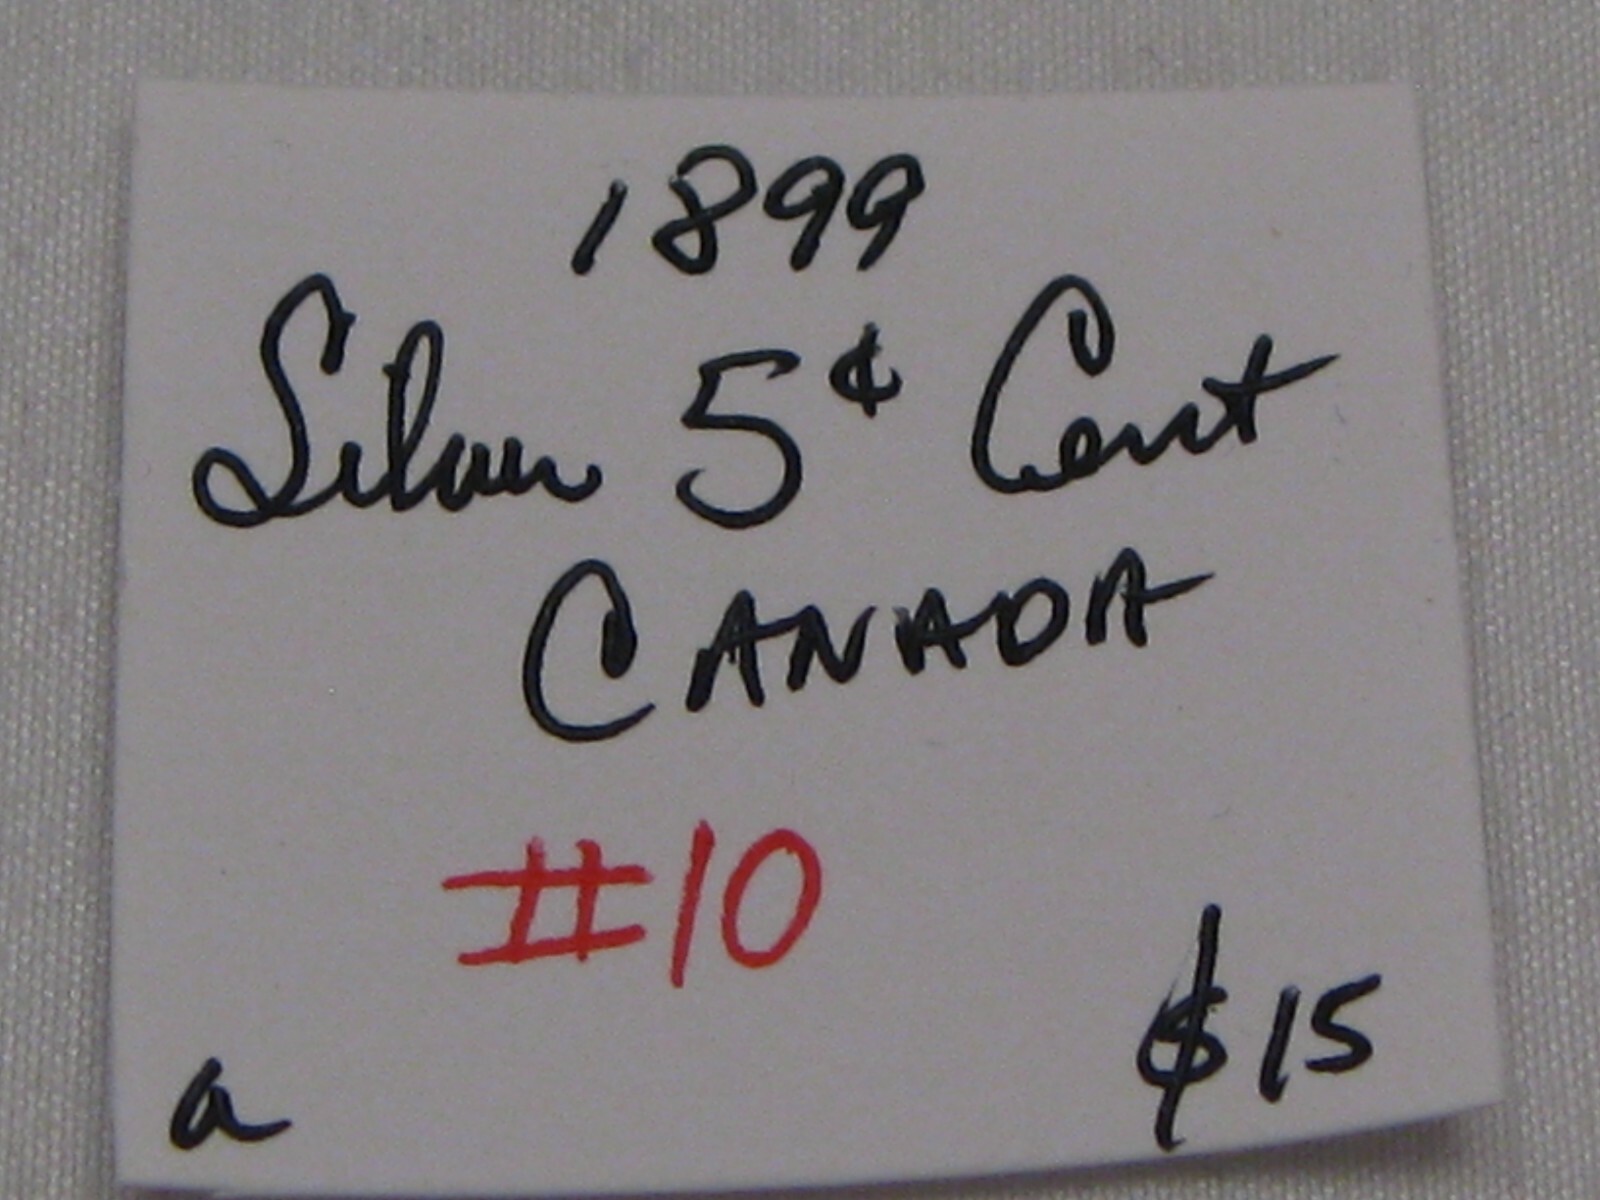 1899
Silver 5¢ Cent
CANADA
#10
$15
a